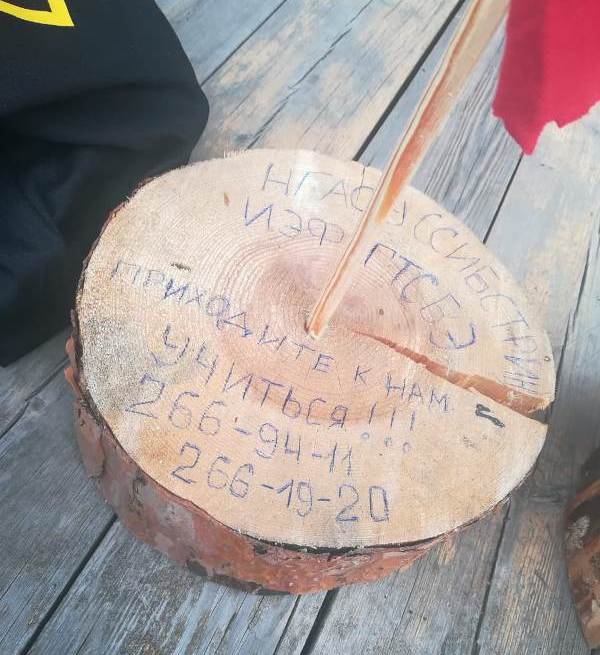 НГАСУ ССИБСТРИН
ИЭФ ГТСБЭ
ПРИХОДИТЕ К НАМ
УЧИТЬСЯ!!!
266-94-11
266-19-20